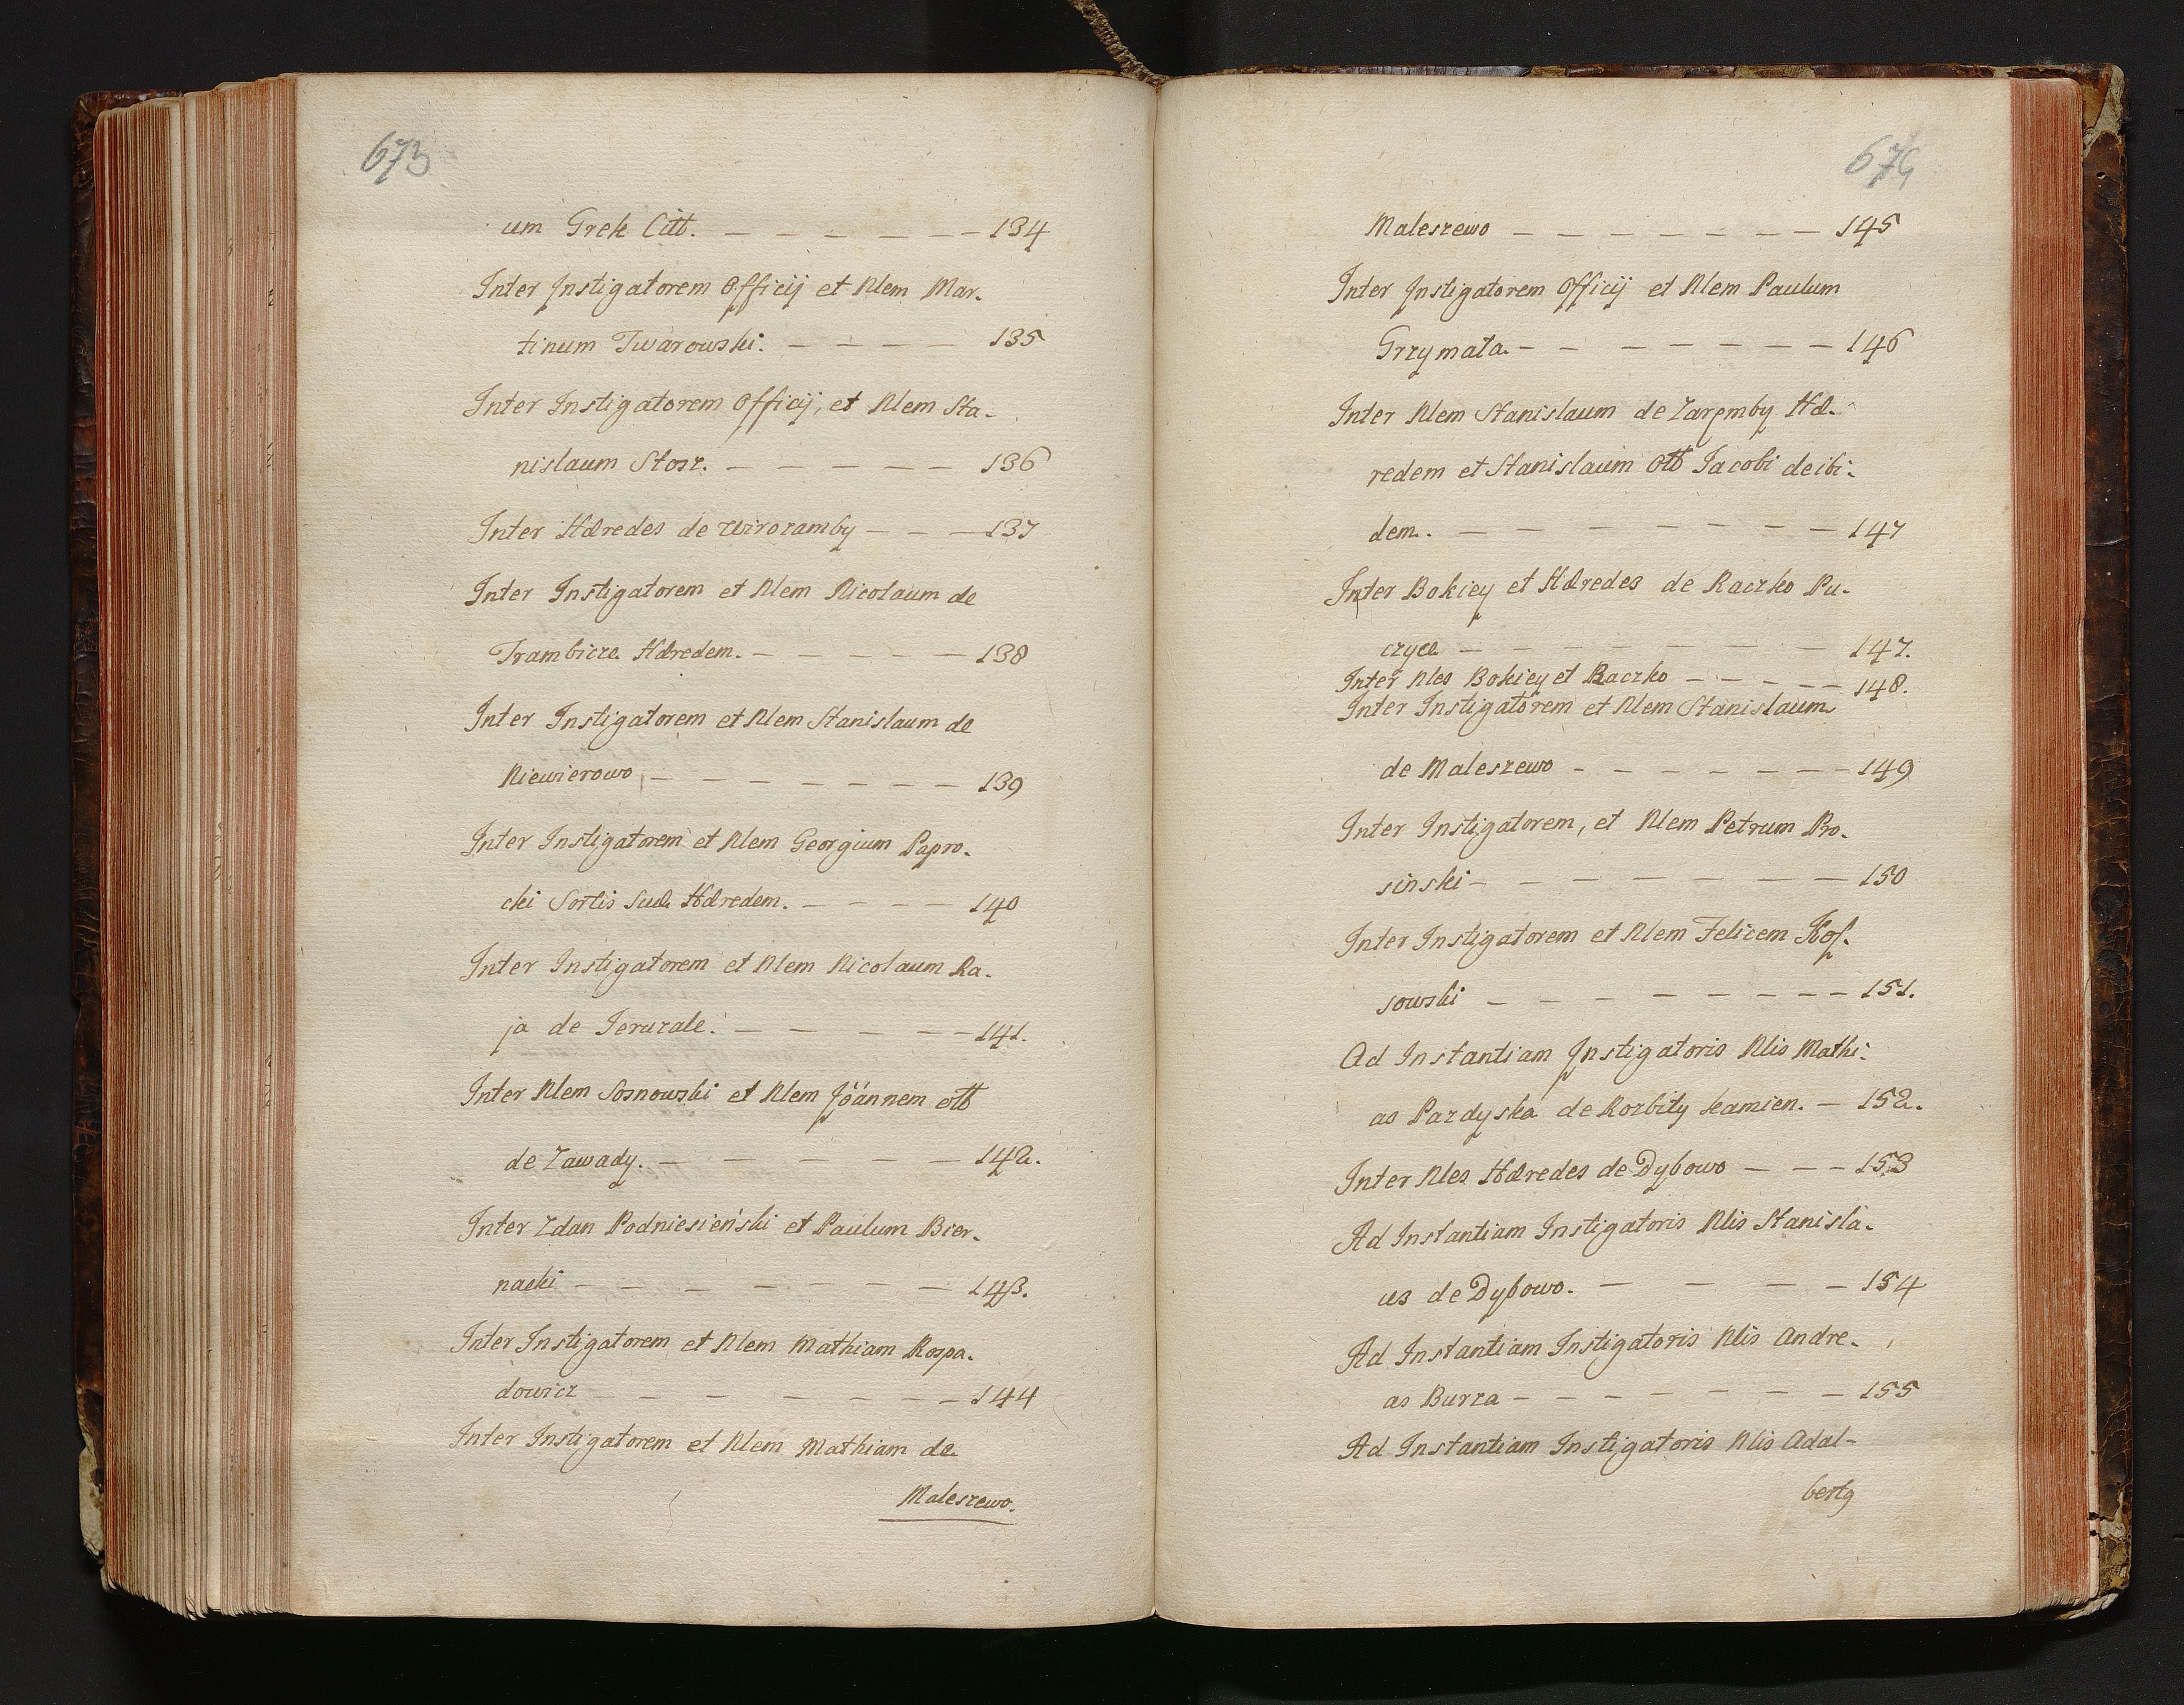 673
um Grek Citt. — — — — — — 134
Inter Instigatorem Officij et Nlem Mar-
tinum Twarowski. — — — — 135
Inter Instigatorem Officij, et Nlem Sta-
nislaum Stosz. — — — — — 136
Inter Hæredes de Wirozamby — — — 137
Inter Instigatorem et Nlem Nicolaum de
Trambicze Hæredem. — — — — — 138
Inter Instigatorem et Nlem Stanislaum de
Niewierowo — — — — — — — 139
Inter Instigatorem et Nlem Georgium Papro-
cki Sortis Suæ Hæredem. — — — — 140
Inter Instigatorem et Nlem Nicolaum Ra-
ja de Jeruzale. — — — — — — 141.
Inter Nlem Sosnowski et Nlem Joannem ott
de Zawady. — — — — — — 142.
Inter Zdan Podniesieński et Paulum Bier-
nacki — — — — — — — — 143.
Inter Instigatorem et Nlem Mathiam Rospa-
dowicz — — — — — — — — 144
Inter Instigatorem et Nlem Mathiam de
Maleszewo.
674
Maleszewo — — — — — — — 145
Inter Instigatorem Officij et Nlem Paulum
Grzymała. — — — — — — — — 146
Inter Nlem Stanislaum de Zaremby Hæ-
redem et Stanislaum ott Jacobi de ibi-
dem. — — — — — — — — 147
Inter Bokiey et Hæredes de Raczko Pu-
czyce — — — — — — — — 147.
Inter Nles Bokiey et Raczko — — — — — 148.
Inter Instigatorem et Nlem Stanislaum
de Maleszewo — — — — — — — 149
Inter Instigatorem, et Nlem Petrum Pro-
sinski — — — — — — — — 150
Inter Instigatorem et Nlem Felicem Kos-
sowski — — — — — — — — — 151.
Ad Instantiam Instigatoris Nlis Mathi-
as Pazdyska de Rozbity kamien. — 152.
Inter Nles Hæredes de Dybowo — — — 153
Ad Instantiam Instigatoris Nlis Stanisla-
us de Dybowo. — — — — 154
Ad Instantiam Instigatoris Nlis Andre-
as Burza — — — — — — — 155
Ad Instantiam Instigatoris Nlis Adal-